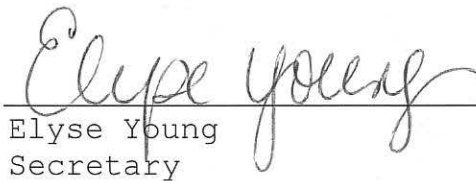 Elyse Young
Elyse Young
Secretary